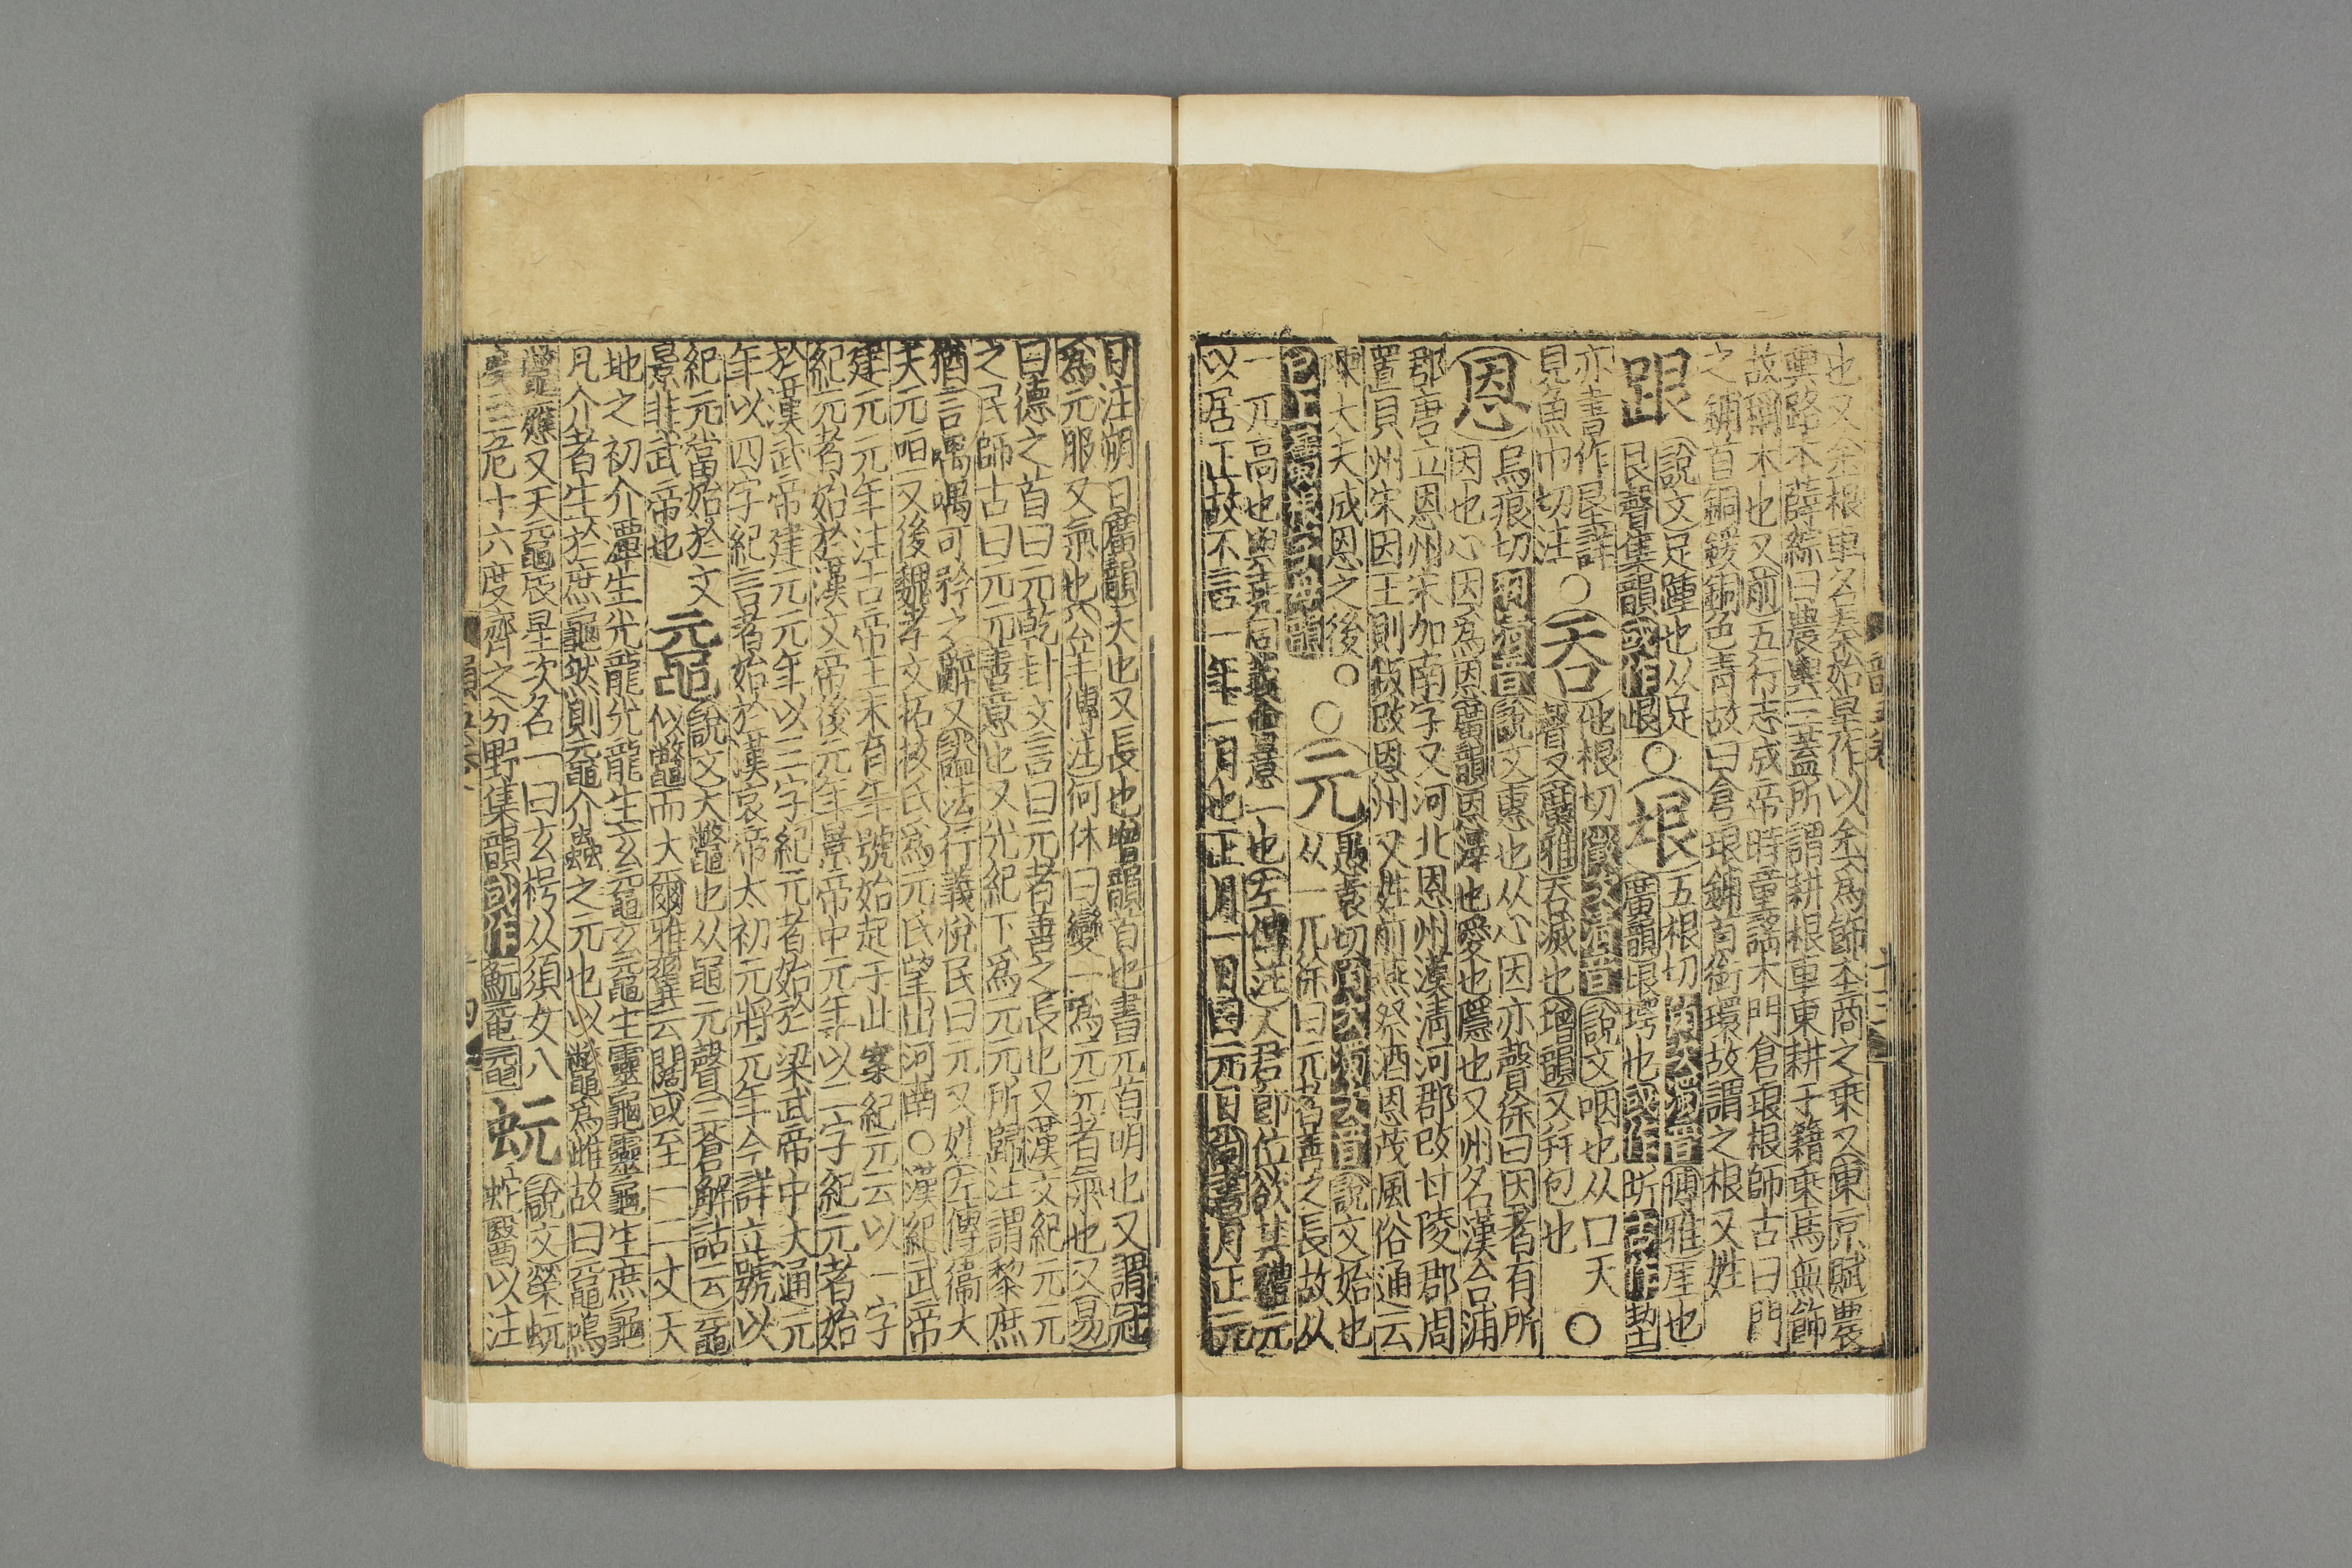 也又金根車名秦始皇作以金爲飾本商之乗又東京賦農
輿路木薛綜曰農輿三蓋所謂耕根車東耕于籍乗馬無飾
故稱木也又前五行志成帝時童謡木門倉琅根師古曰門
之鋪首銅鍰銅色青故曰倉琅鋪首銜環故謂之根又姓
跟
說文足踵也从足
艮聲集韻或作㫔
○垠
五根切角次濁音博雅厓也
廣韻垠堮也或作圻古作㙬
亦書作㘫詳
見魚巾切注
○吞
他根切徵次清音說文咽也从口天
聲又廣雅吞滅也增韻又幷包也
○
恩
烏痕切羽清音說文惠也从心因亦聲徐曰因者有所
因也心因爲恩廣韻恩澤也愛也隱也又州名漢合浦
郡唐立恩州宋加南字又河北恩州漢清河郡改甘陵郡周
置貝州宋因王則叛改恩州又姓前燕祭酒恩茂風俗通云
陳大夫成恩之後○
已上屬根字母韻
○元
愚袁切角次濁次音說文始也
从一兀徐曰元者善之長故从
一兀高也與堯同義會意一也左傳注人君即位欲其體元
以居正故不言一年一月也正月一日曰元日尚書月正元
日注朔日廣韻大也又長也增韻首也書元首明也又謂冠
爲元服又氣也公羊傳注何休曰變一爲元元者氣也又易
曰德之首曰元乾卦文言曰元者善之長也又漢文紀元元
之民師古曰元元善意也又光紀下爲元元所歸注謂黎庶
猶言喁喁可矜之辭又謚法行義悅民曰元又姓左傳衞大
夫元咺又後魏孝文拓拔氏爲元氏望出河南○漢紀武帝
建元元年注古帝王未有年號始起于此案紀元云以一字
紀元者始於漢文帝後元年景帝中元年以二字紀元者始
於漢武帝建元元年以三字紀元者始於梁武帝中大通元
年以四字紀言者始於漢哀帝太初元將元年今詳立號以
紀元當始於文
景非武帝也
黿
說文大鼈也从黽元聲三蒼解詁云黿
似鼈而大爾雅翼云闊或至一二丈天
地之初介潭生先龍先龍生玄黿玄黿生靈龜靈龜生庶龜
凡介者生於庶龜然則黿介蟲之元也以鼈爲雌故曰黿鳴
鼈應又天黿辰星次名一曰玄枵从須女八
度至危十六度齊之分野集韻或作魭
蚖
說文榮蚖
蛇醫以注